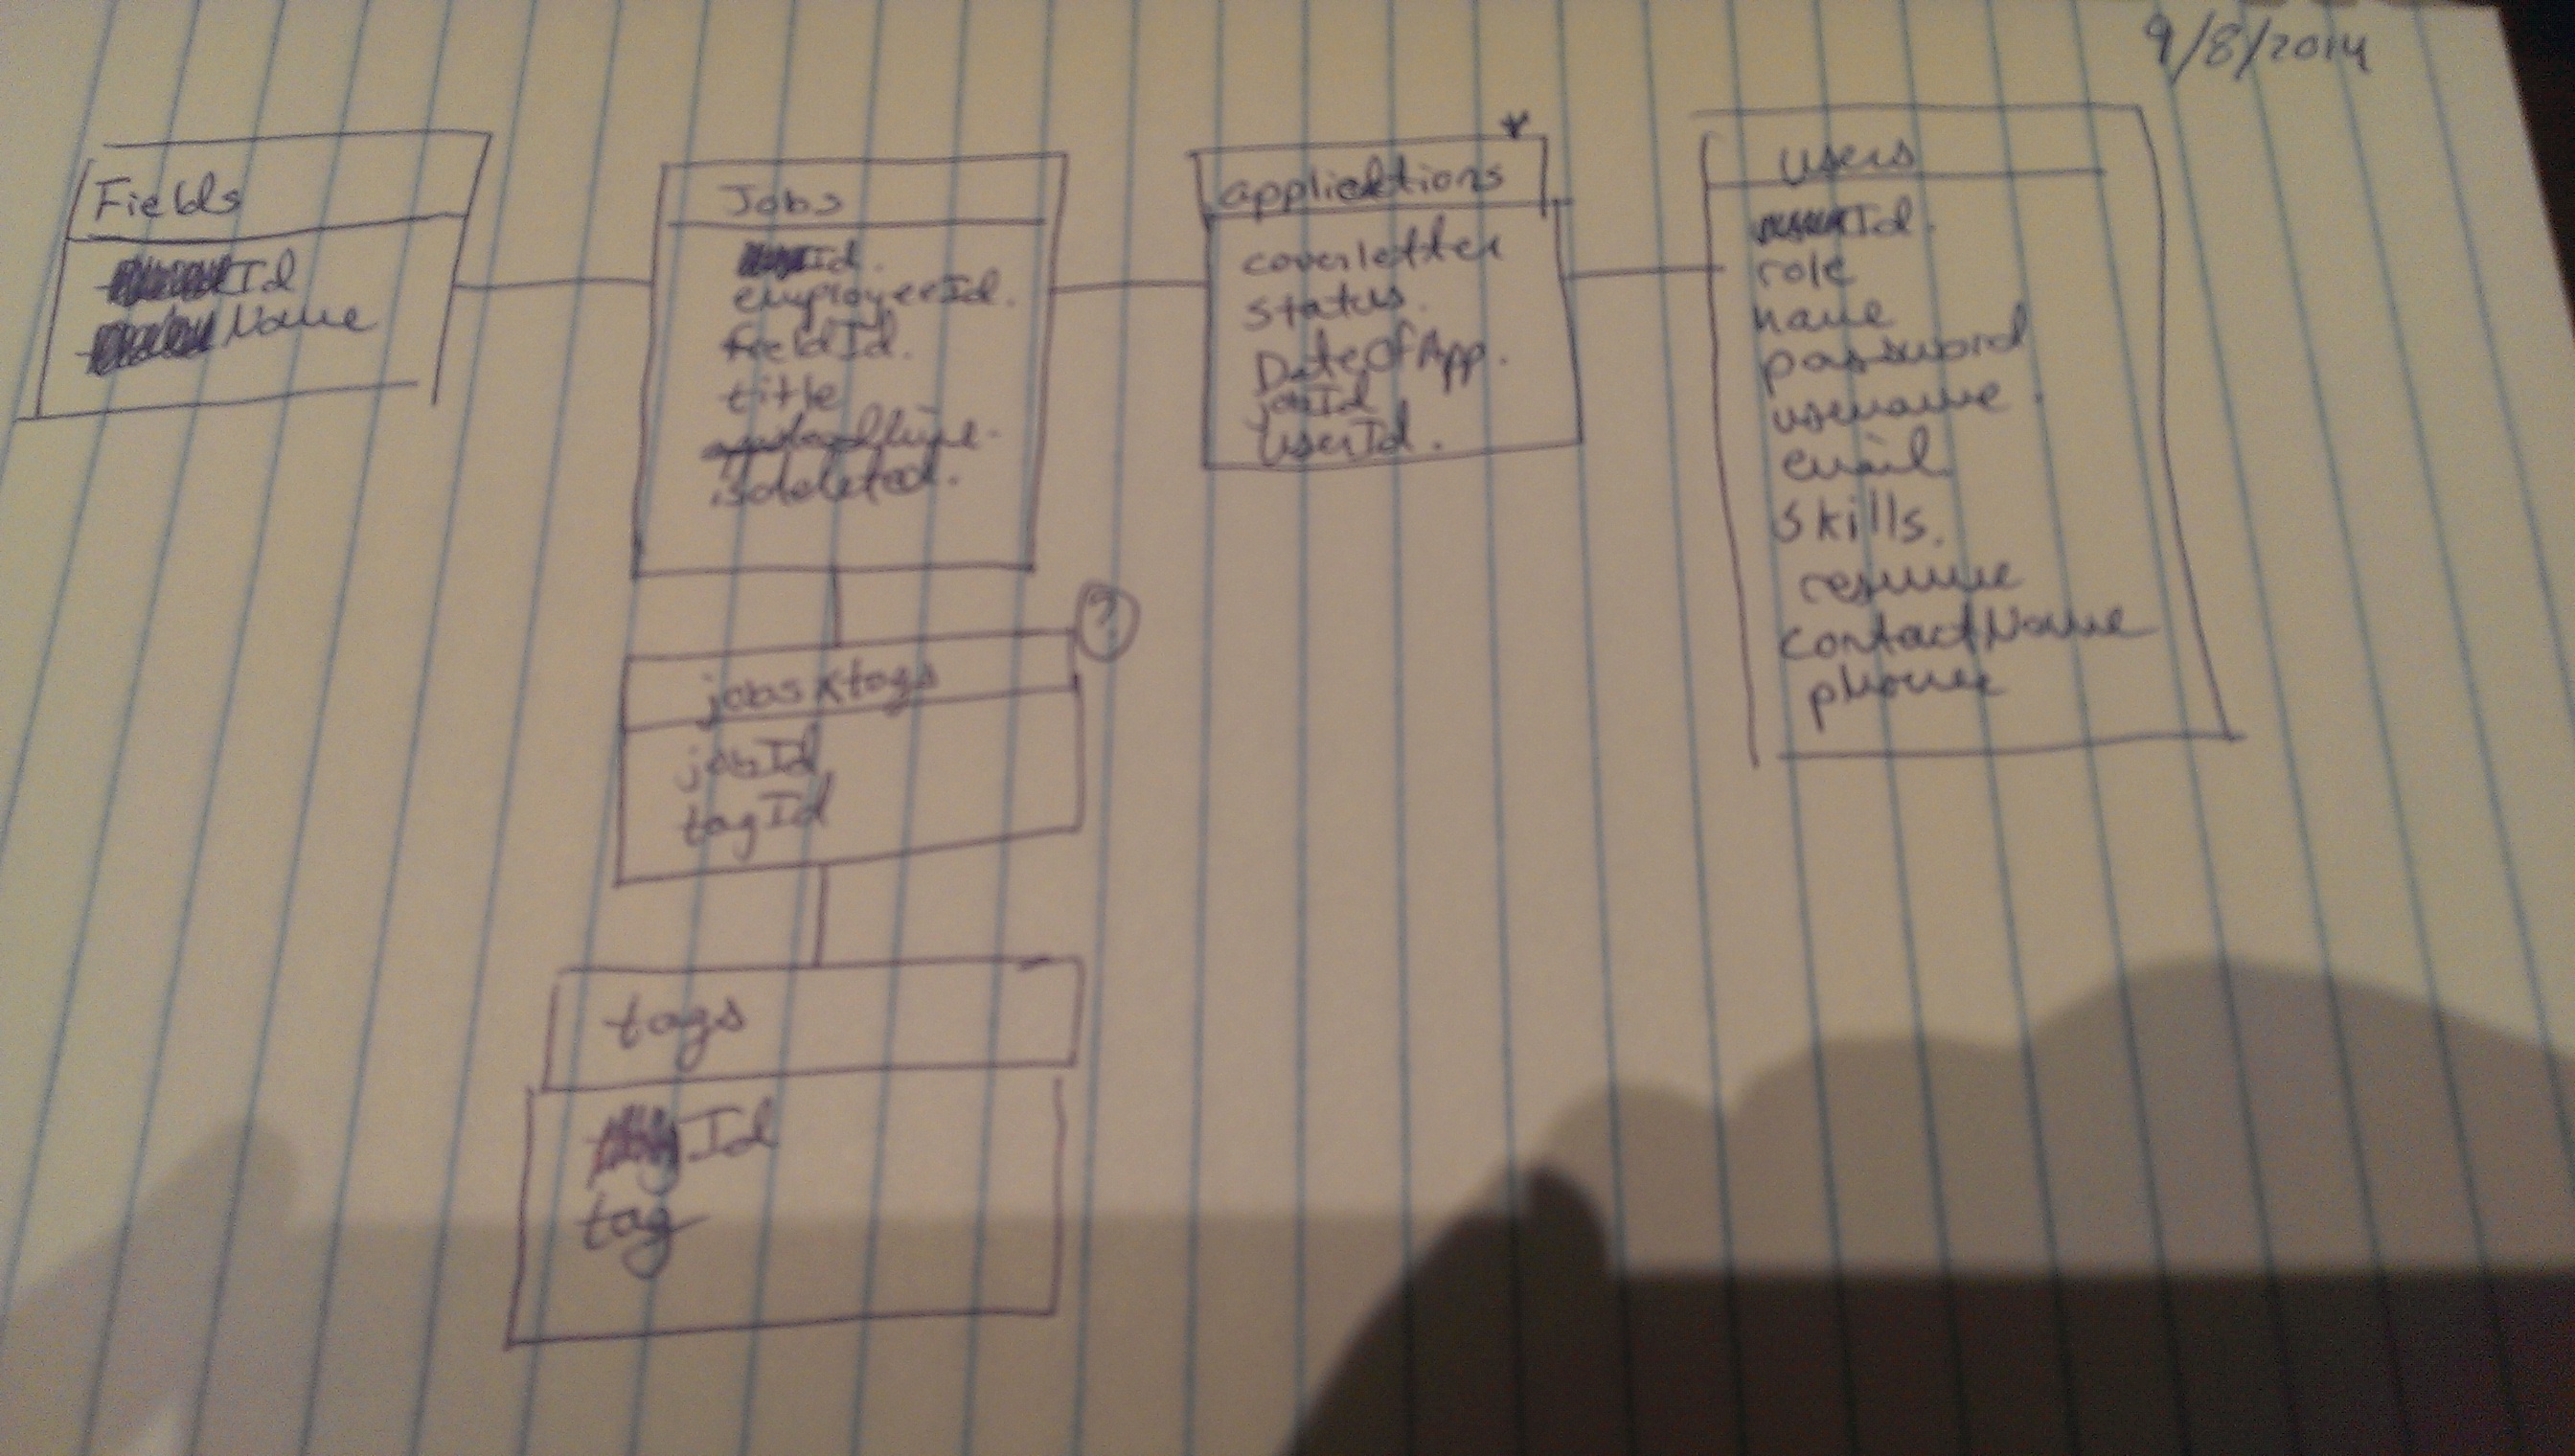 9/8/2014
Fields
Id
Name
Jobs
Id.
employeeId.
fieldId.
title
isdeleted.
applications
coverletter
status.
DateOfApp.
jobId
userId.
users
Id.
role
name
password
username.
email
skills.
resume
contactName
phone
?
jobsxtags
jobId
tagId
tags
Id
tag